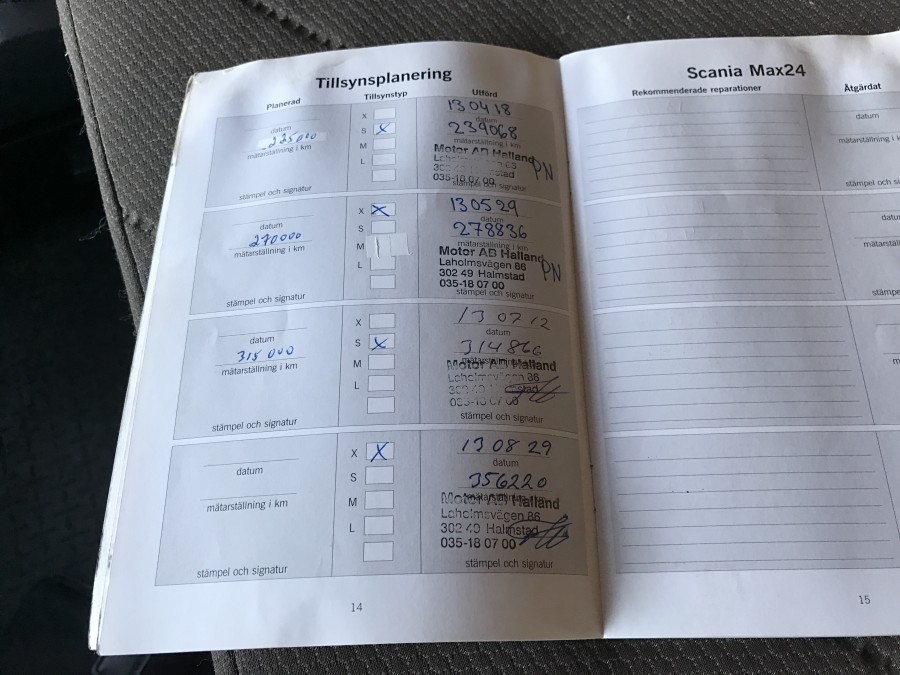 Tillsynsplanering
Planerad Tillsynstyp Utförd
X 130418
datum datum
S X 239068
225000
mätarställning i km mätarställning i km
M Motor AB Halland
L PN
035-18 07 00
stämpel och signatur stämpel och signatur
X X 130529
datum datum
S 278836
270000
mätarställning i km mätarställning i km
M Motor AB Halland
L Laholmsvägen 86
302 49 Halmstad PN
035-18 07 00
stämpel och signatur stämpel och signatur
X 130712
datum datum
S X 314866
315000
mätarställning i km mätarställning i km
M Motor AB Halland
L
stämpel och signatur stämpel och signatur
X X 130829
datum datum
S 356220
mätarställning i km mätarställning i km
M Motor AB Halland
Laholmsvägen 86
L 302 49 Halmstad
035-18 07 00
stämpel och signatur stämpel och signatur
14
Scania Max24
Rekommenderade reparationer Åtgärdat
datum
mätarställning i
stämpel och
15